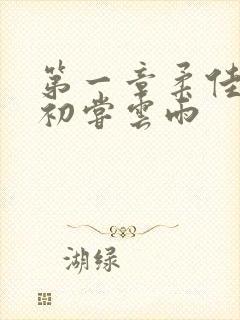 第一章柔佳
初嘗雲雨
湖绿